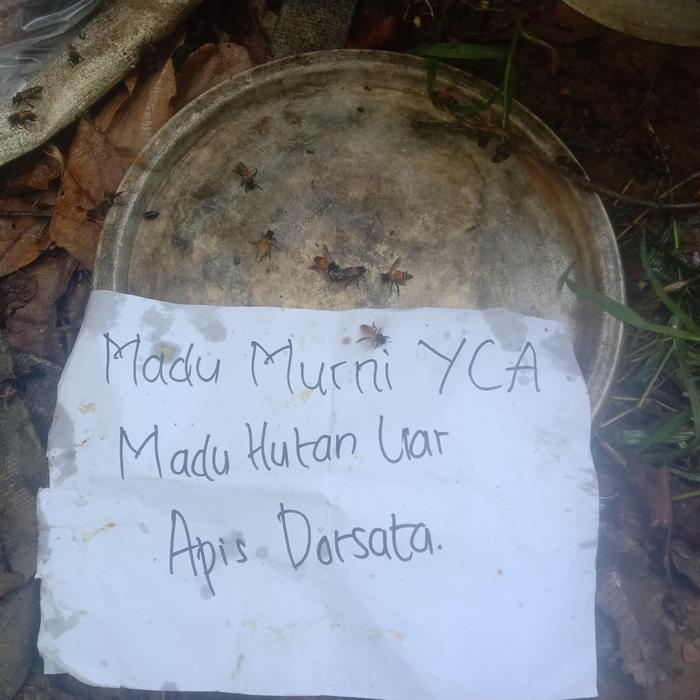 Madu Murni YCA
Madu Hutan Liar
Apis Dorsata.